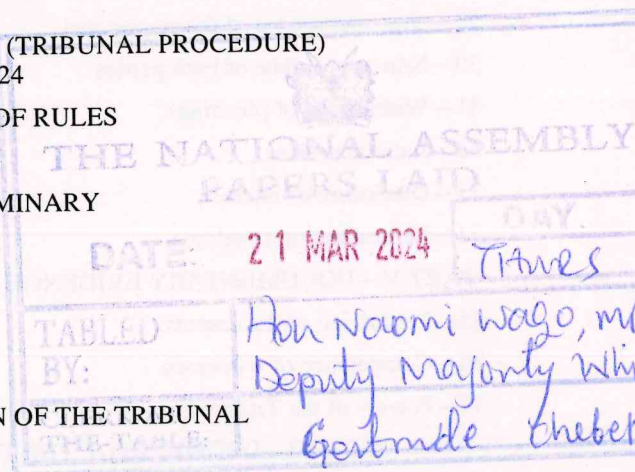 (TRIBUNAL PROCEDURE)
24
OF RULES
THE NATIONAL ASSEMBLY
PAPERS LAID
MINARY
DAY.
DATE: 21 MAR 2024
TABLED BY: Hon Naomi Wago, MP
Deputy Majority Whi
N OF THE TRIBUNAL
THE-TABLE: Gertrude